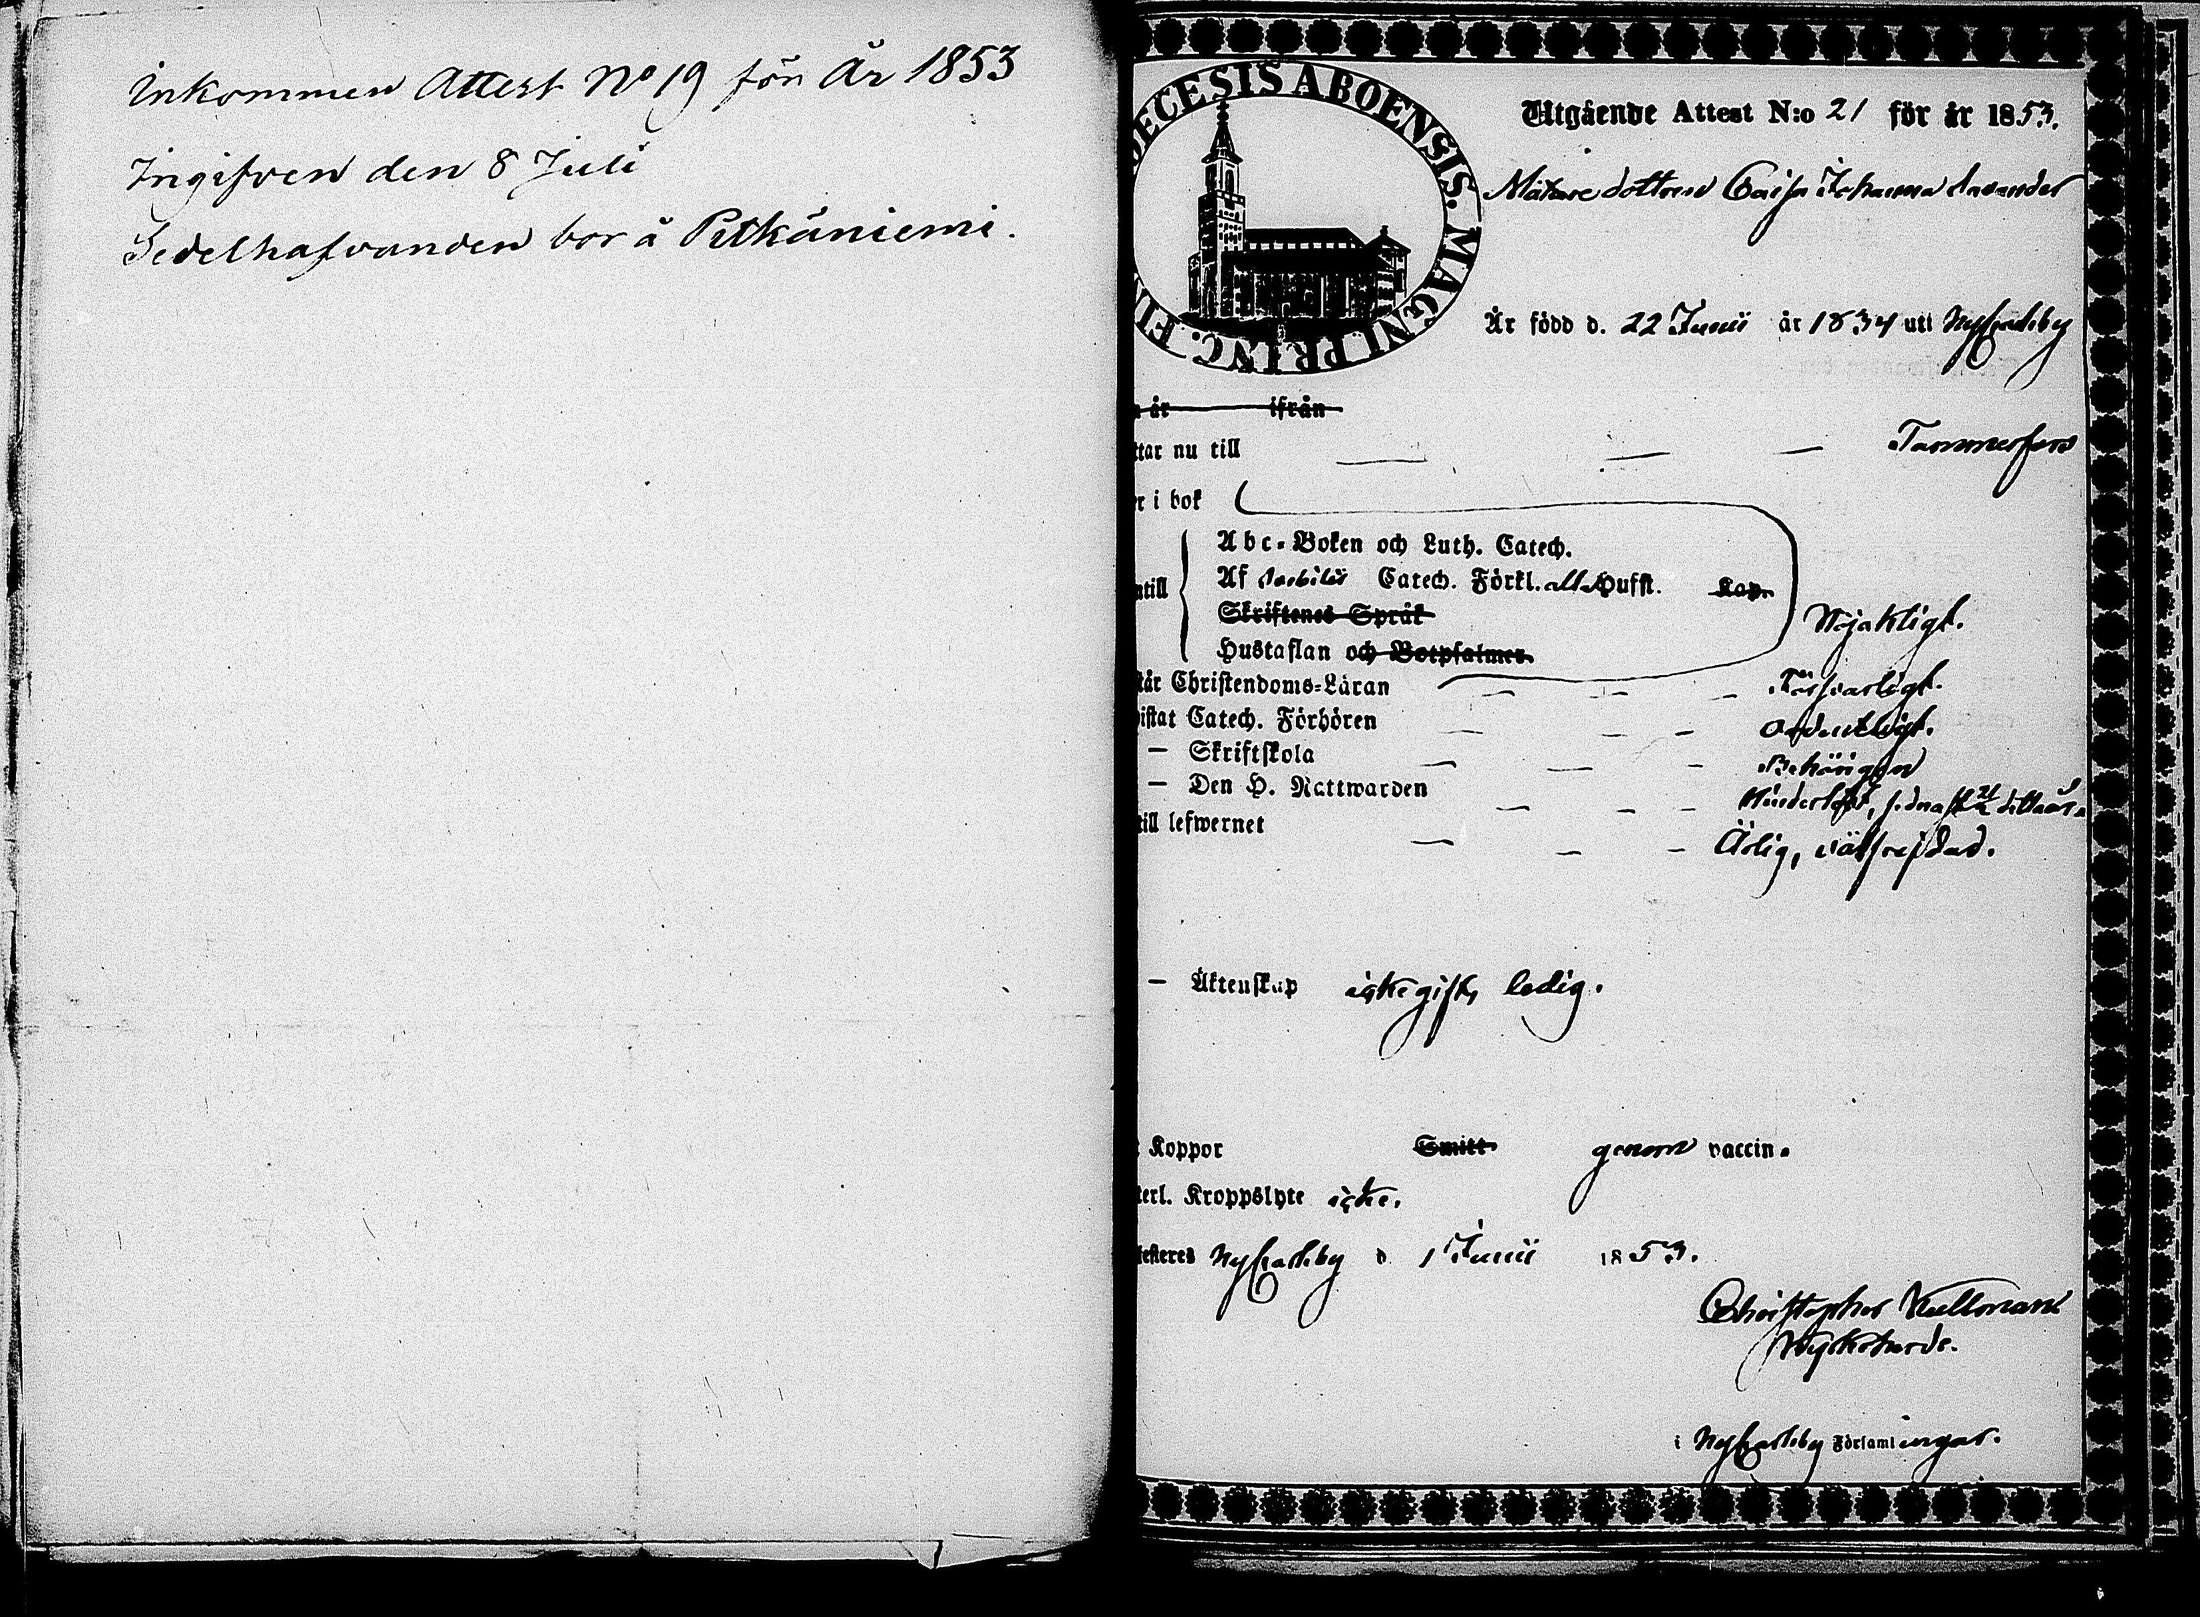 Inkommen Attest No 19 för År 1853
Ingifven den 8 Juli
Sedelhafvanden bor å Pitkäniemi.
DIOECESIS ABOENSIS. MAGNI PRINC. FIN
Utgående Attest N:o 21 för år 1853.
Mätare dottren Caisa Johanna
Är född d. 22 Junii år 1834 uti NyCarleby
år ifrån
ttar nu till Tammerfors
er i bok
Abc-Boken och Luth. Catech.
ntill Af Catech. Förkl. alla Hufst. Kap.
Skriftenes Språk
Hustaflan och Botpsalmer.
Nöjaktigt.
tår Christendoms-Läran Försvarligt.
istat Catech. Förhören Ordentligt.
— Skriftskola Behörigen
— Den H. Nattwarden sednast detta år.
till lefwernet Ärlig, välfrejdad.
— Äktenskap icke gift, ledig.
t Koppor Smitt genom vaccin.
terl. Kroppslyte icke.
esteres NyCarleby d. 1 Junii 1853.
Christopher
i NyCarleby Församlingar.